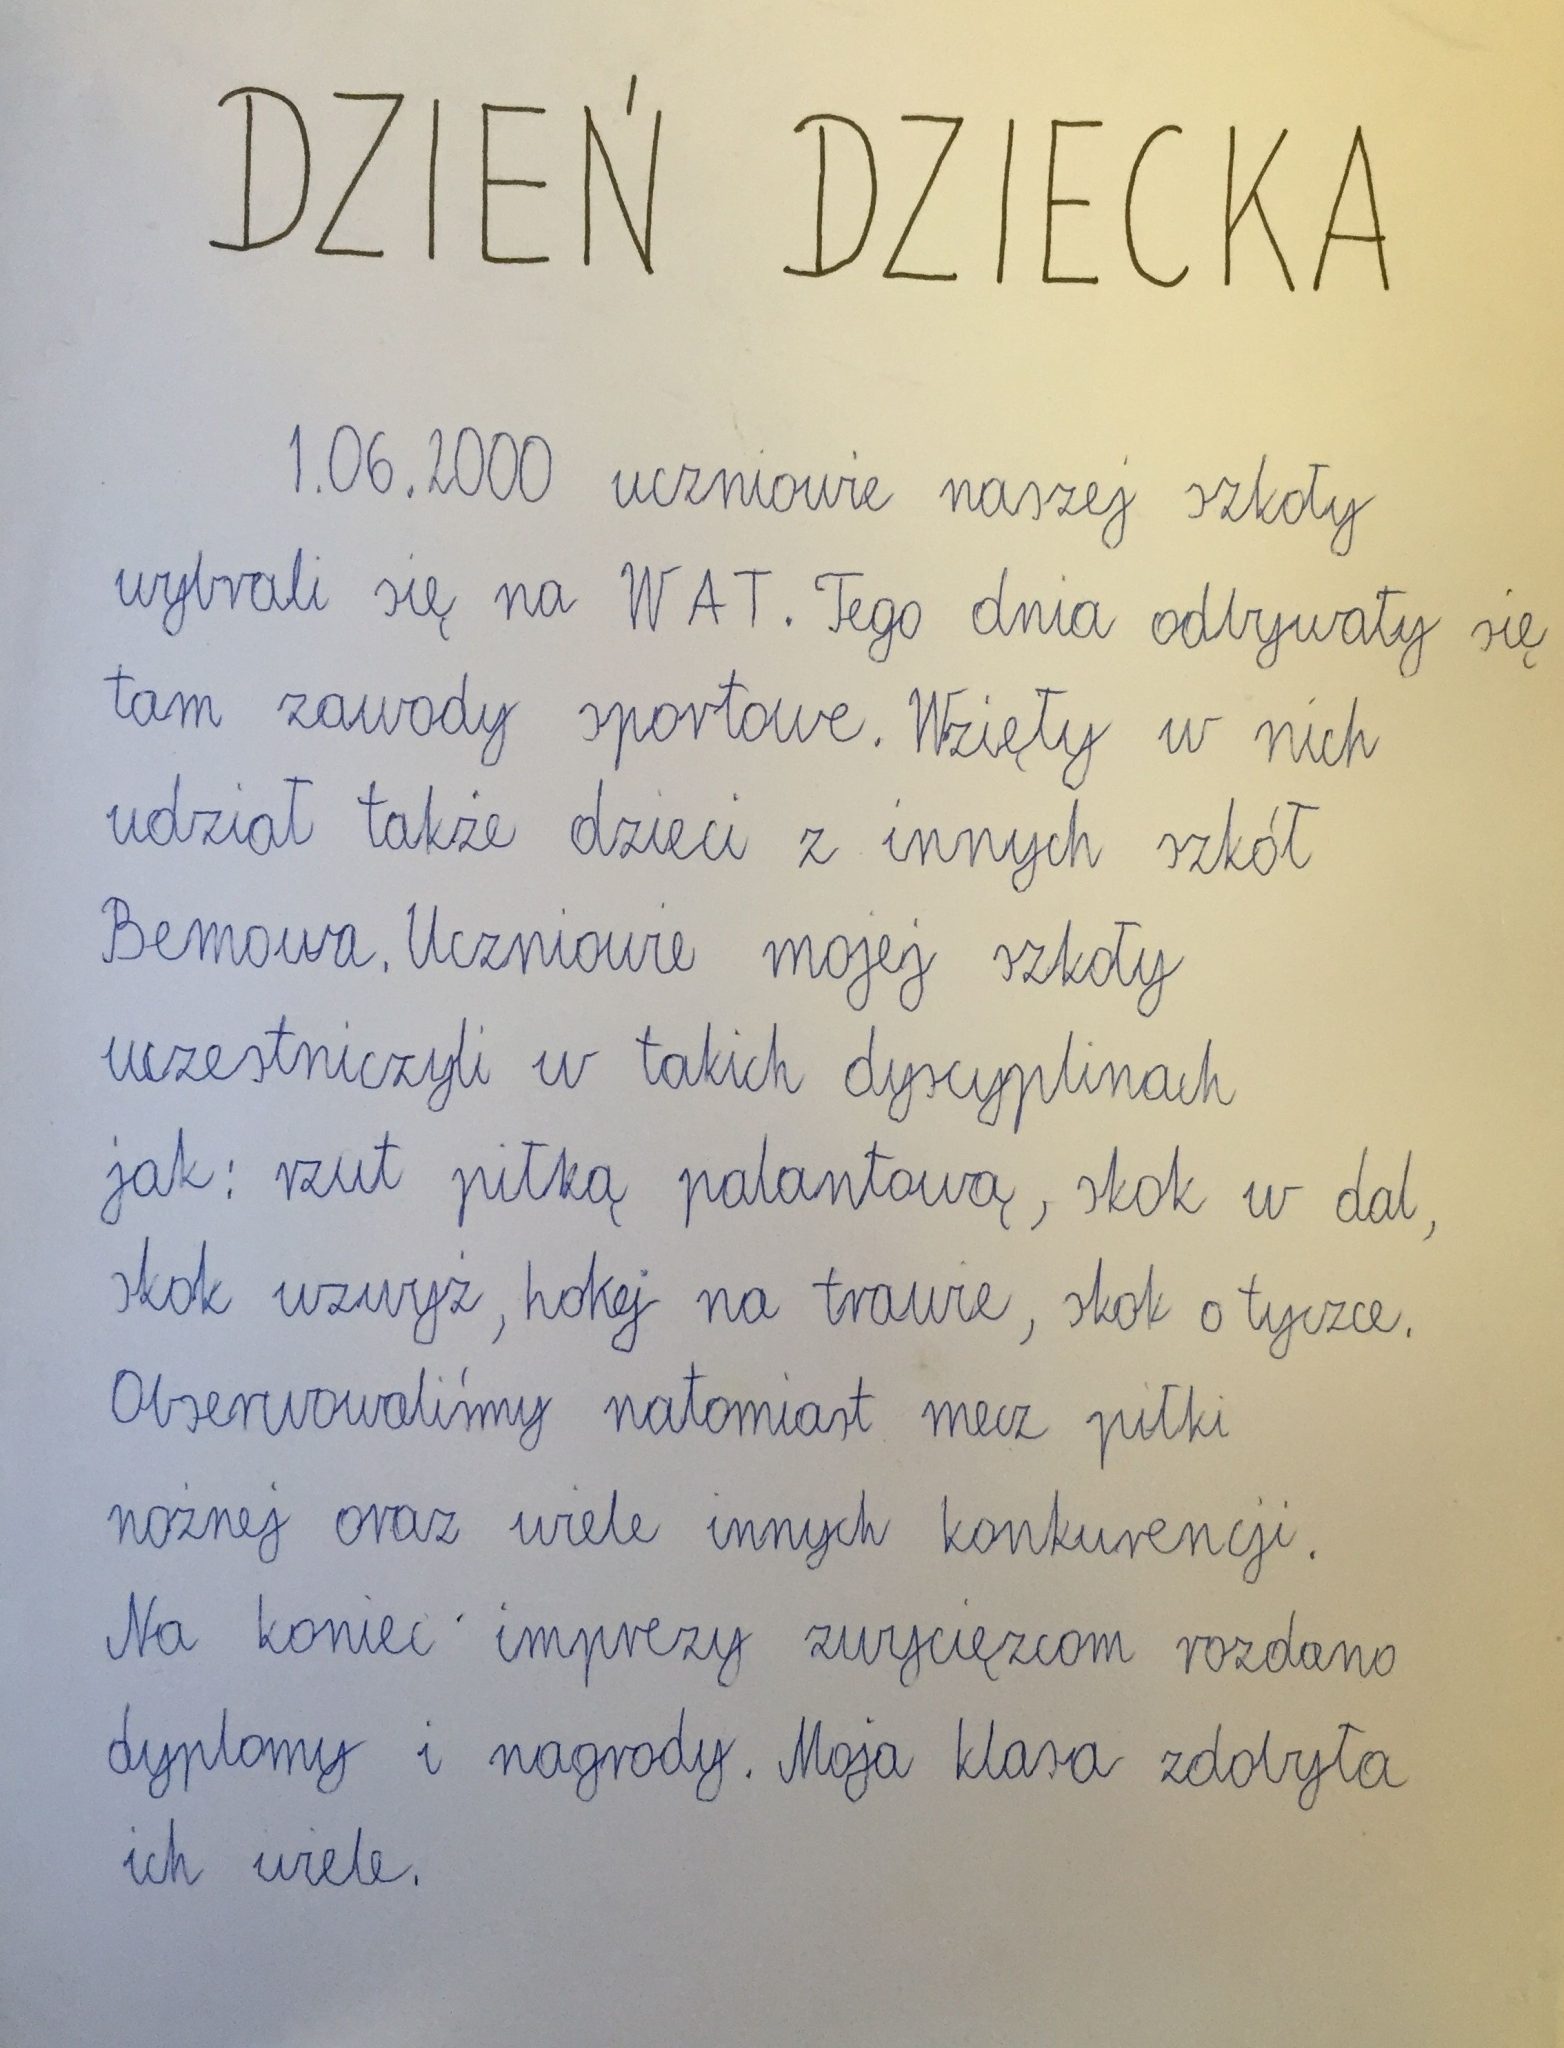 DZIEŃ DZIECKA
1.06.2000 uczniowie naszej szkoły
wybrali się na WAT. Tego dnia odbywały się
tam zawody sportowe. Wzięły w nich
udział także dzieci z innych szkół
Bemowa. Uczniowie mojej szkoły
uczestniczyli w takich dyscyplinach
jak: rzut piłką palantową, skok w dal,
skok wzwyż, hokej na trawie, skok o tyczce.
Obserwowaliśmy natomiast mecz piłki
nożnej oraz wiele innych konkurencji.
Na koniec imprezy zwycięzcom rozdano
dyplomy i nagrody. Moja klasa zdobyła
ich wiele.